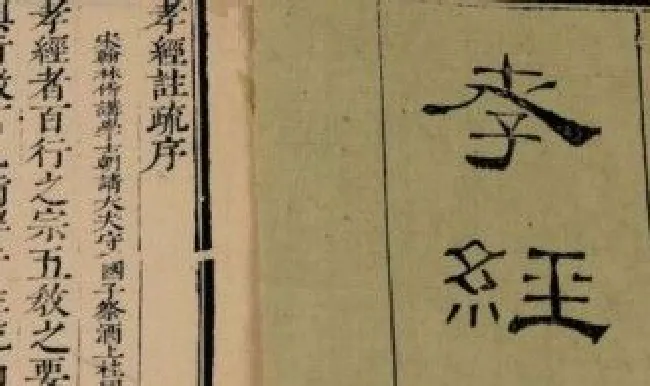 孝
經
孝經註疏序
宋翰林侍講學士朝請大夫守國子祭酒上柱
孝經者百行之宗五教之要